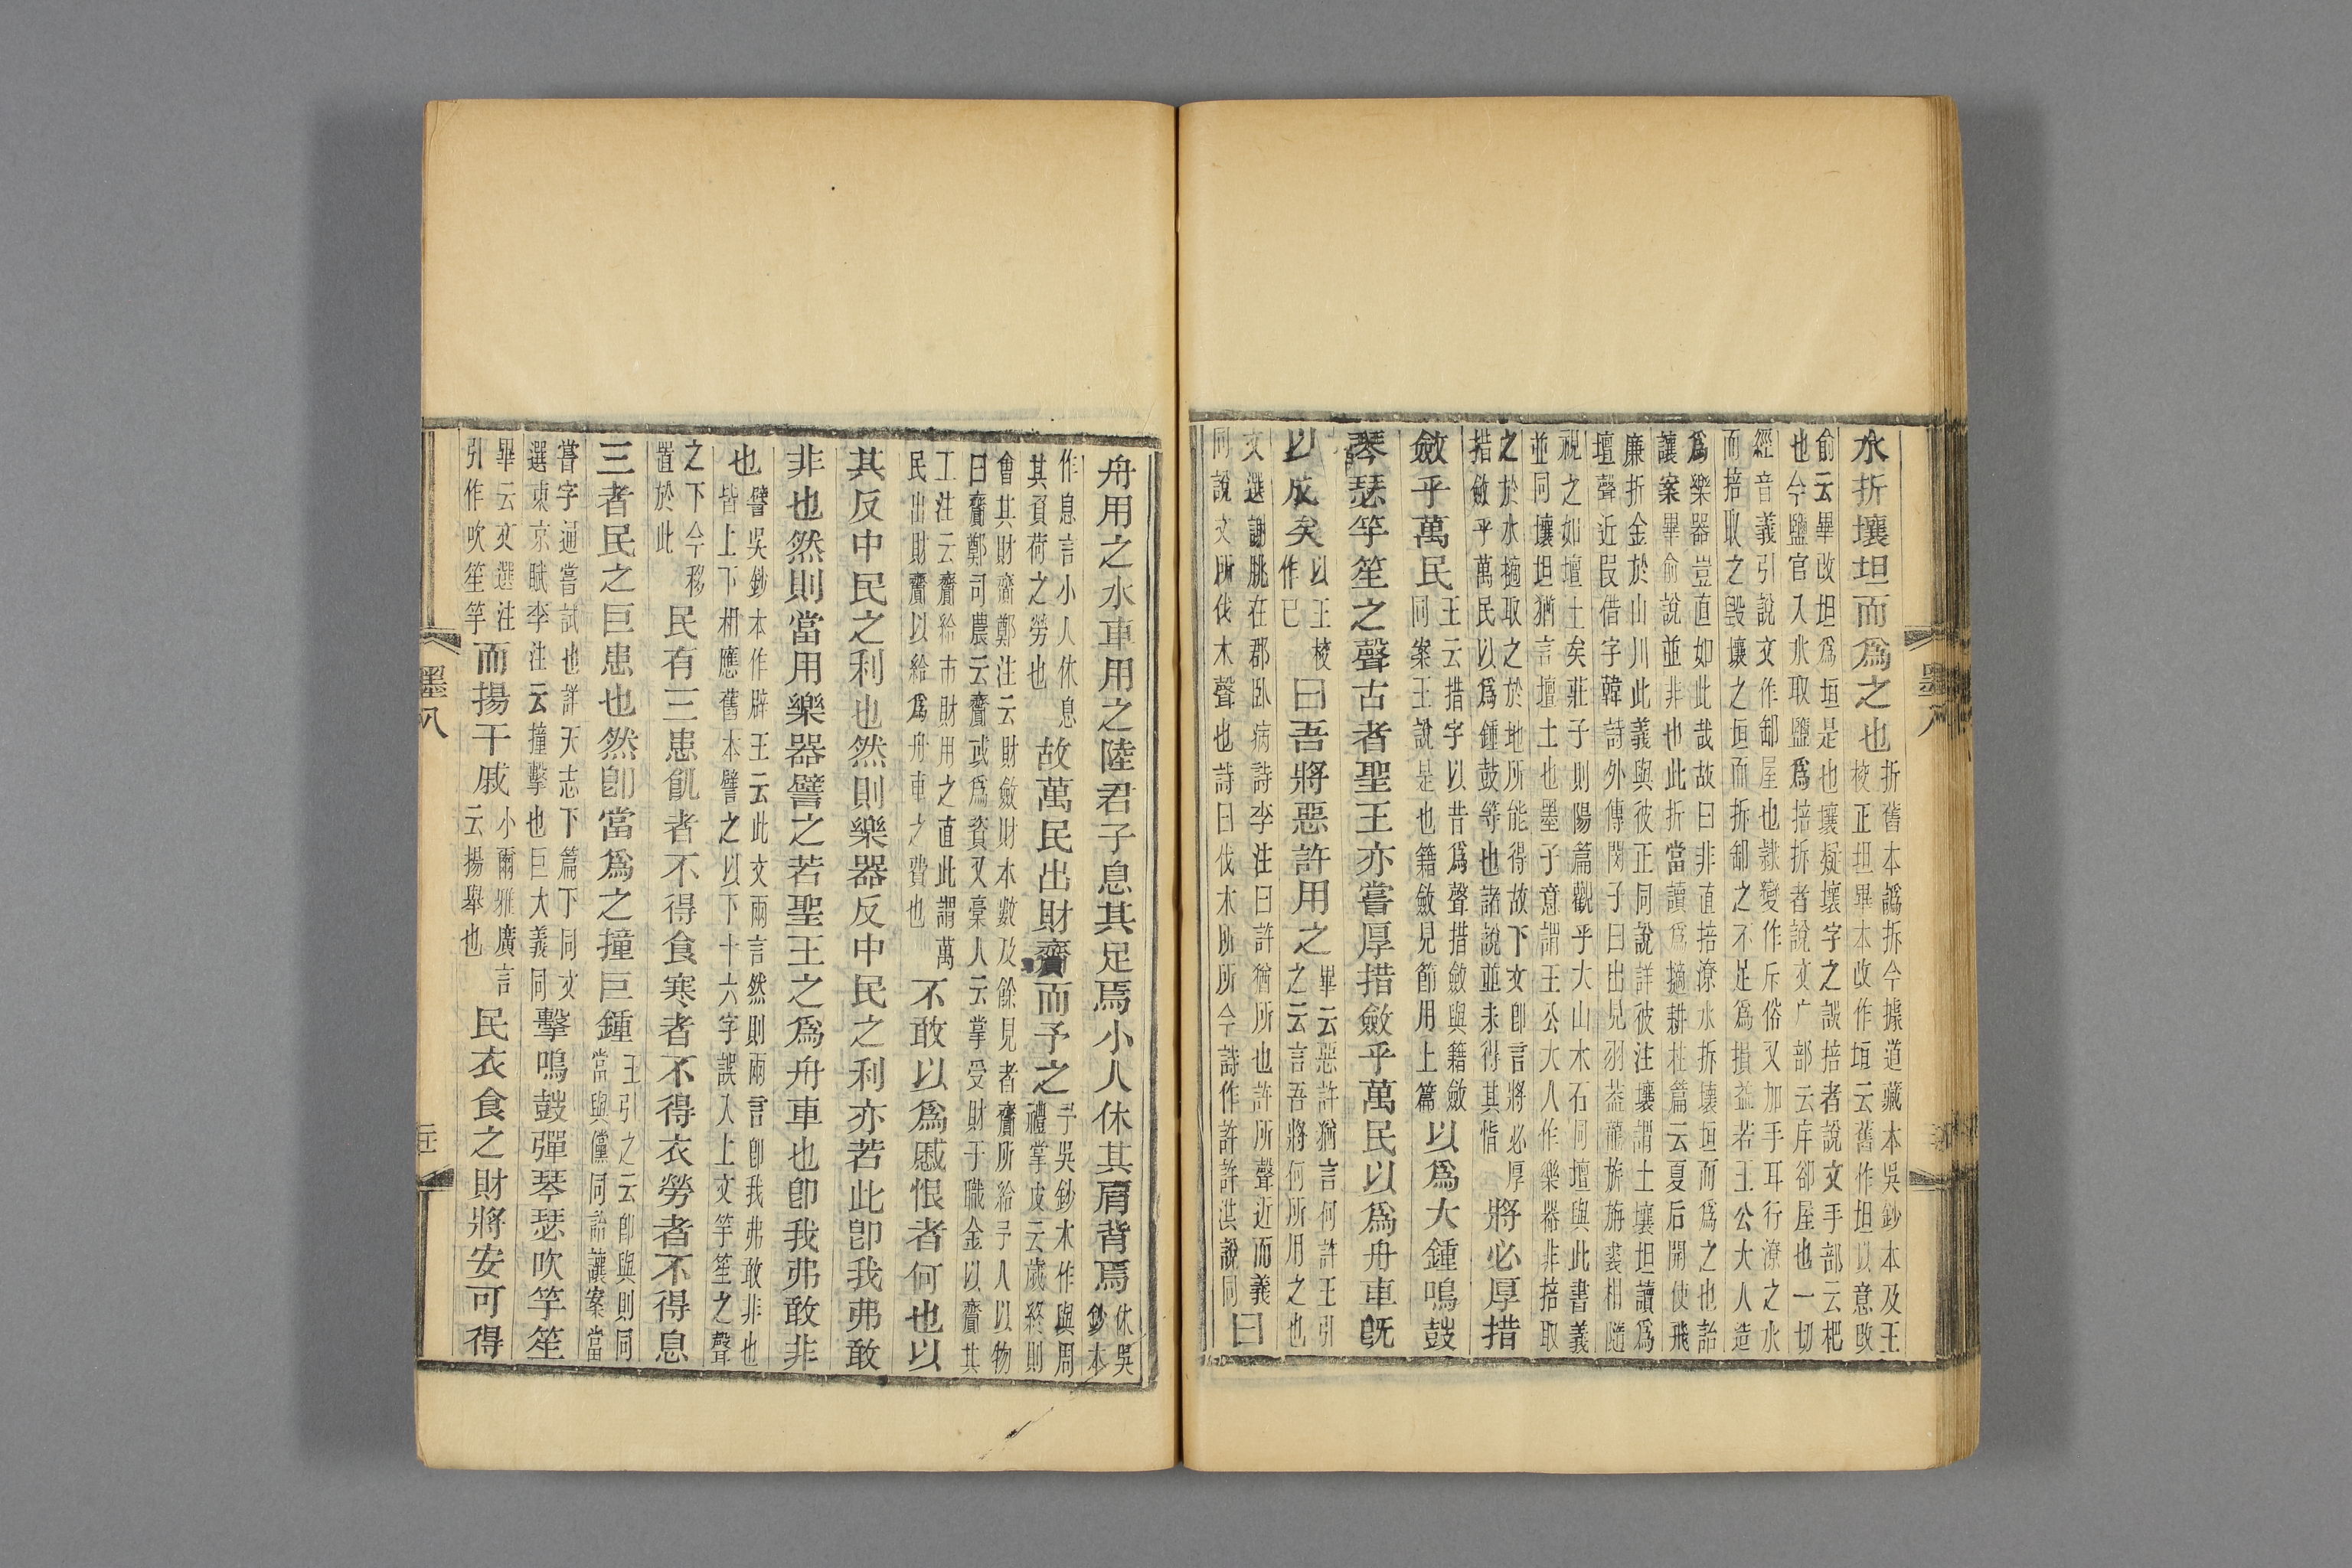 水折壤坦而爲之也折舊本譌拆今據道藏本吳鈔本及王校正坦畢本改作垣云舊作坦以意改
俞云畢改坦爲垣是也壤疑壞字之誤掊者說文手部云杷
也今鹽官入水取鹽爲掊拆者說文广部云㡿卻屋也一切
經音義引說文作卻屋也隸變作斥俗又加手耳行潦之水
而掊取之毀壤之垣而拆卻之不足爲損益若王公大人造
爲樂器豈直如此哉故曰非直掊潦水拆壞垣而爲之也詒
讓案畢俞說並非也此折當讀爲擿耕柱篇云夏后開使飛
廉折金於山川此義與彼正同說詳彼注壤謂土壤坦讀爲
壇聲近叚借字韓詩外傳閔子曰出見羽蓋龍旂旃裘相隨
視之如壇土矣莊子則陽篇觀乎大山木石同壇與此書義
並同壤坦猶言壇土也墨子意謂王公大人作樂器非掊取
之於水擿取之於地所能得故下文卽言將必厚
措斂乎萬民以爲鍾鼓等也諸說並未得其恉將必厚措
斂乎萬民王云措字以昔爲聲措斂與籍斂同案王說是也籍斂見節用上篇以爲大鍾鳴鼓
琴瑟竽笙之聲古者聖王亦嘗厚措斂乎萬民以爲舟車旣
以成矣以王校作已曰吾將惡許用之畢云惡許猶言何許王引之云言吾將何所用之也
文選謝朓在郡臥病詩李注曰許猶所也許所聲近而義
同說文所伐木聲也詩曰伐木所所今詩作許許洪說同曰
墨八
舟用之水車用之陸君子息其足焉小人休其肩背焉休吳鈔本
作息言小人休息其負荷之勞也故萬民出財齎而予之予吳鈔本作與周禮掌皮云歲終則
會其財齎鄭注云財斂財本數及餘見者齎所給予人以物
曰齎鄭司農云齎或爲資又槀人云掌受財于職金以齎其
工注云齎給市財用之直此謂萬民出財齎以給爲舟車之費也不敢以爲慼恨者何也以
其反中民之利也然則樂器反中民之利亦若此卽我弗敢
非也然則當用樂器譬之若聖王之爲舟車也卽我弗敢非
也譬吳鈔本作辟王云此文兩言然則兩言卽我弗敢非也皆上下相應舊本譬之以下十六字誤入上文竽笙之聲
之下今移置於此民有三患飢者不得食寒者不得衣勞者不得息
三者民之巨患也然卽當爲之撞巨鍾王引之云卽與則同當與儻同詒讓案當
嘗字通嘗試也詳天志下篇下同文選東京賦李注云撞擊也巨大義同擊鳴鼓彈琴瑟吹竽笙
畢云文選注引作吹笙竽而揚干戚小爾雅廣言云揚舉也民衣食之財將安可得
墨八